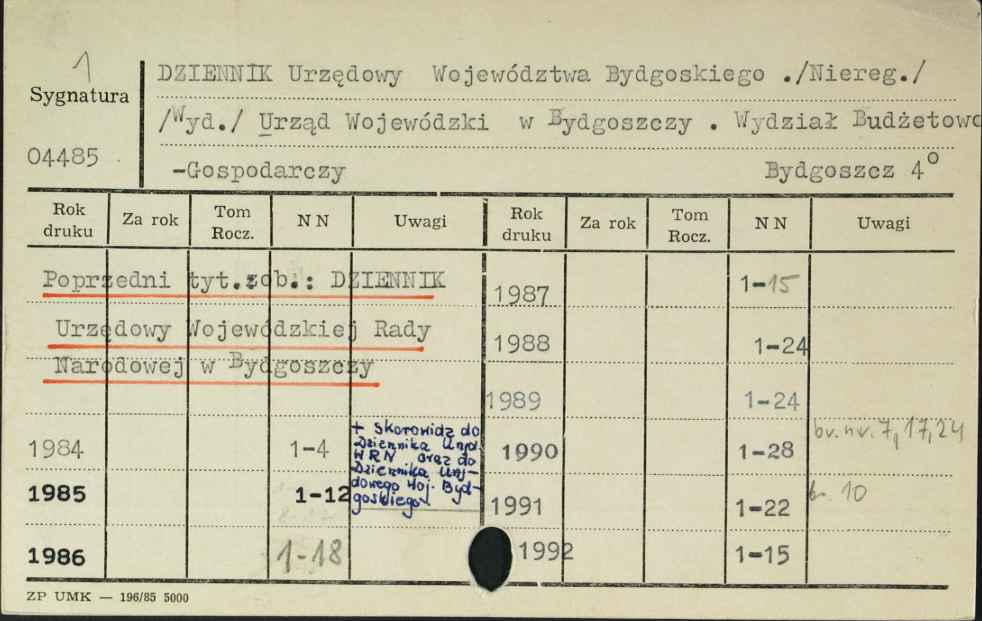 1
Sygnatura
04485
DZIENNIK Urzędowy Województwa Bydgoskiego ./Niereg./
/Wyd./ Urząd Wojewódzki w Bydgoszczy . Wydział Budżetowo
-Gospodarczy Bydgoszcz 4°
Rok druku Za rok Tom Rocz. N N Uwagi Rok druku Za rok Tom Rocz. N N Uwagi
Poprzedni tyt.zob.: DZIENNIK
Urzędowy Wojewódzkiej Rady
Narodowej w Bydgoszczy
1984 1-4
+ Skorowidz do
Dziennika Urzęd.
WRN oraz do
Dziennika Urzę-
dowego Woj. Byd-
goskiego
1985 1-12
1986 1-18
1987 1-15
1988 1-24
1989 1-24
1990 1-28 br. nr. 7, 17, 24
1991 1-22 br. 10
1992 1-15
ZP UMK — 196/85 5000